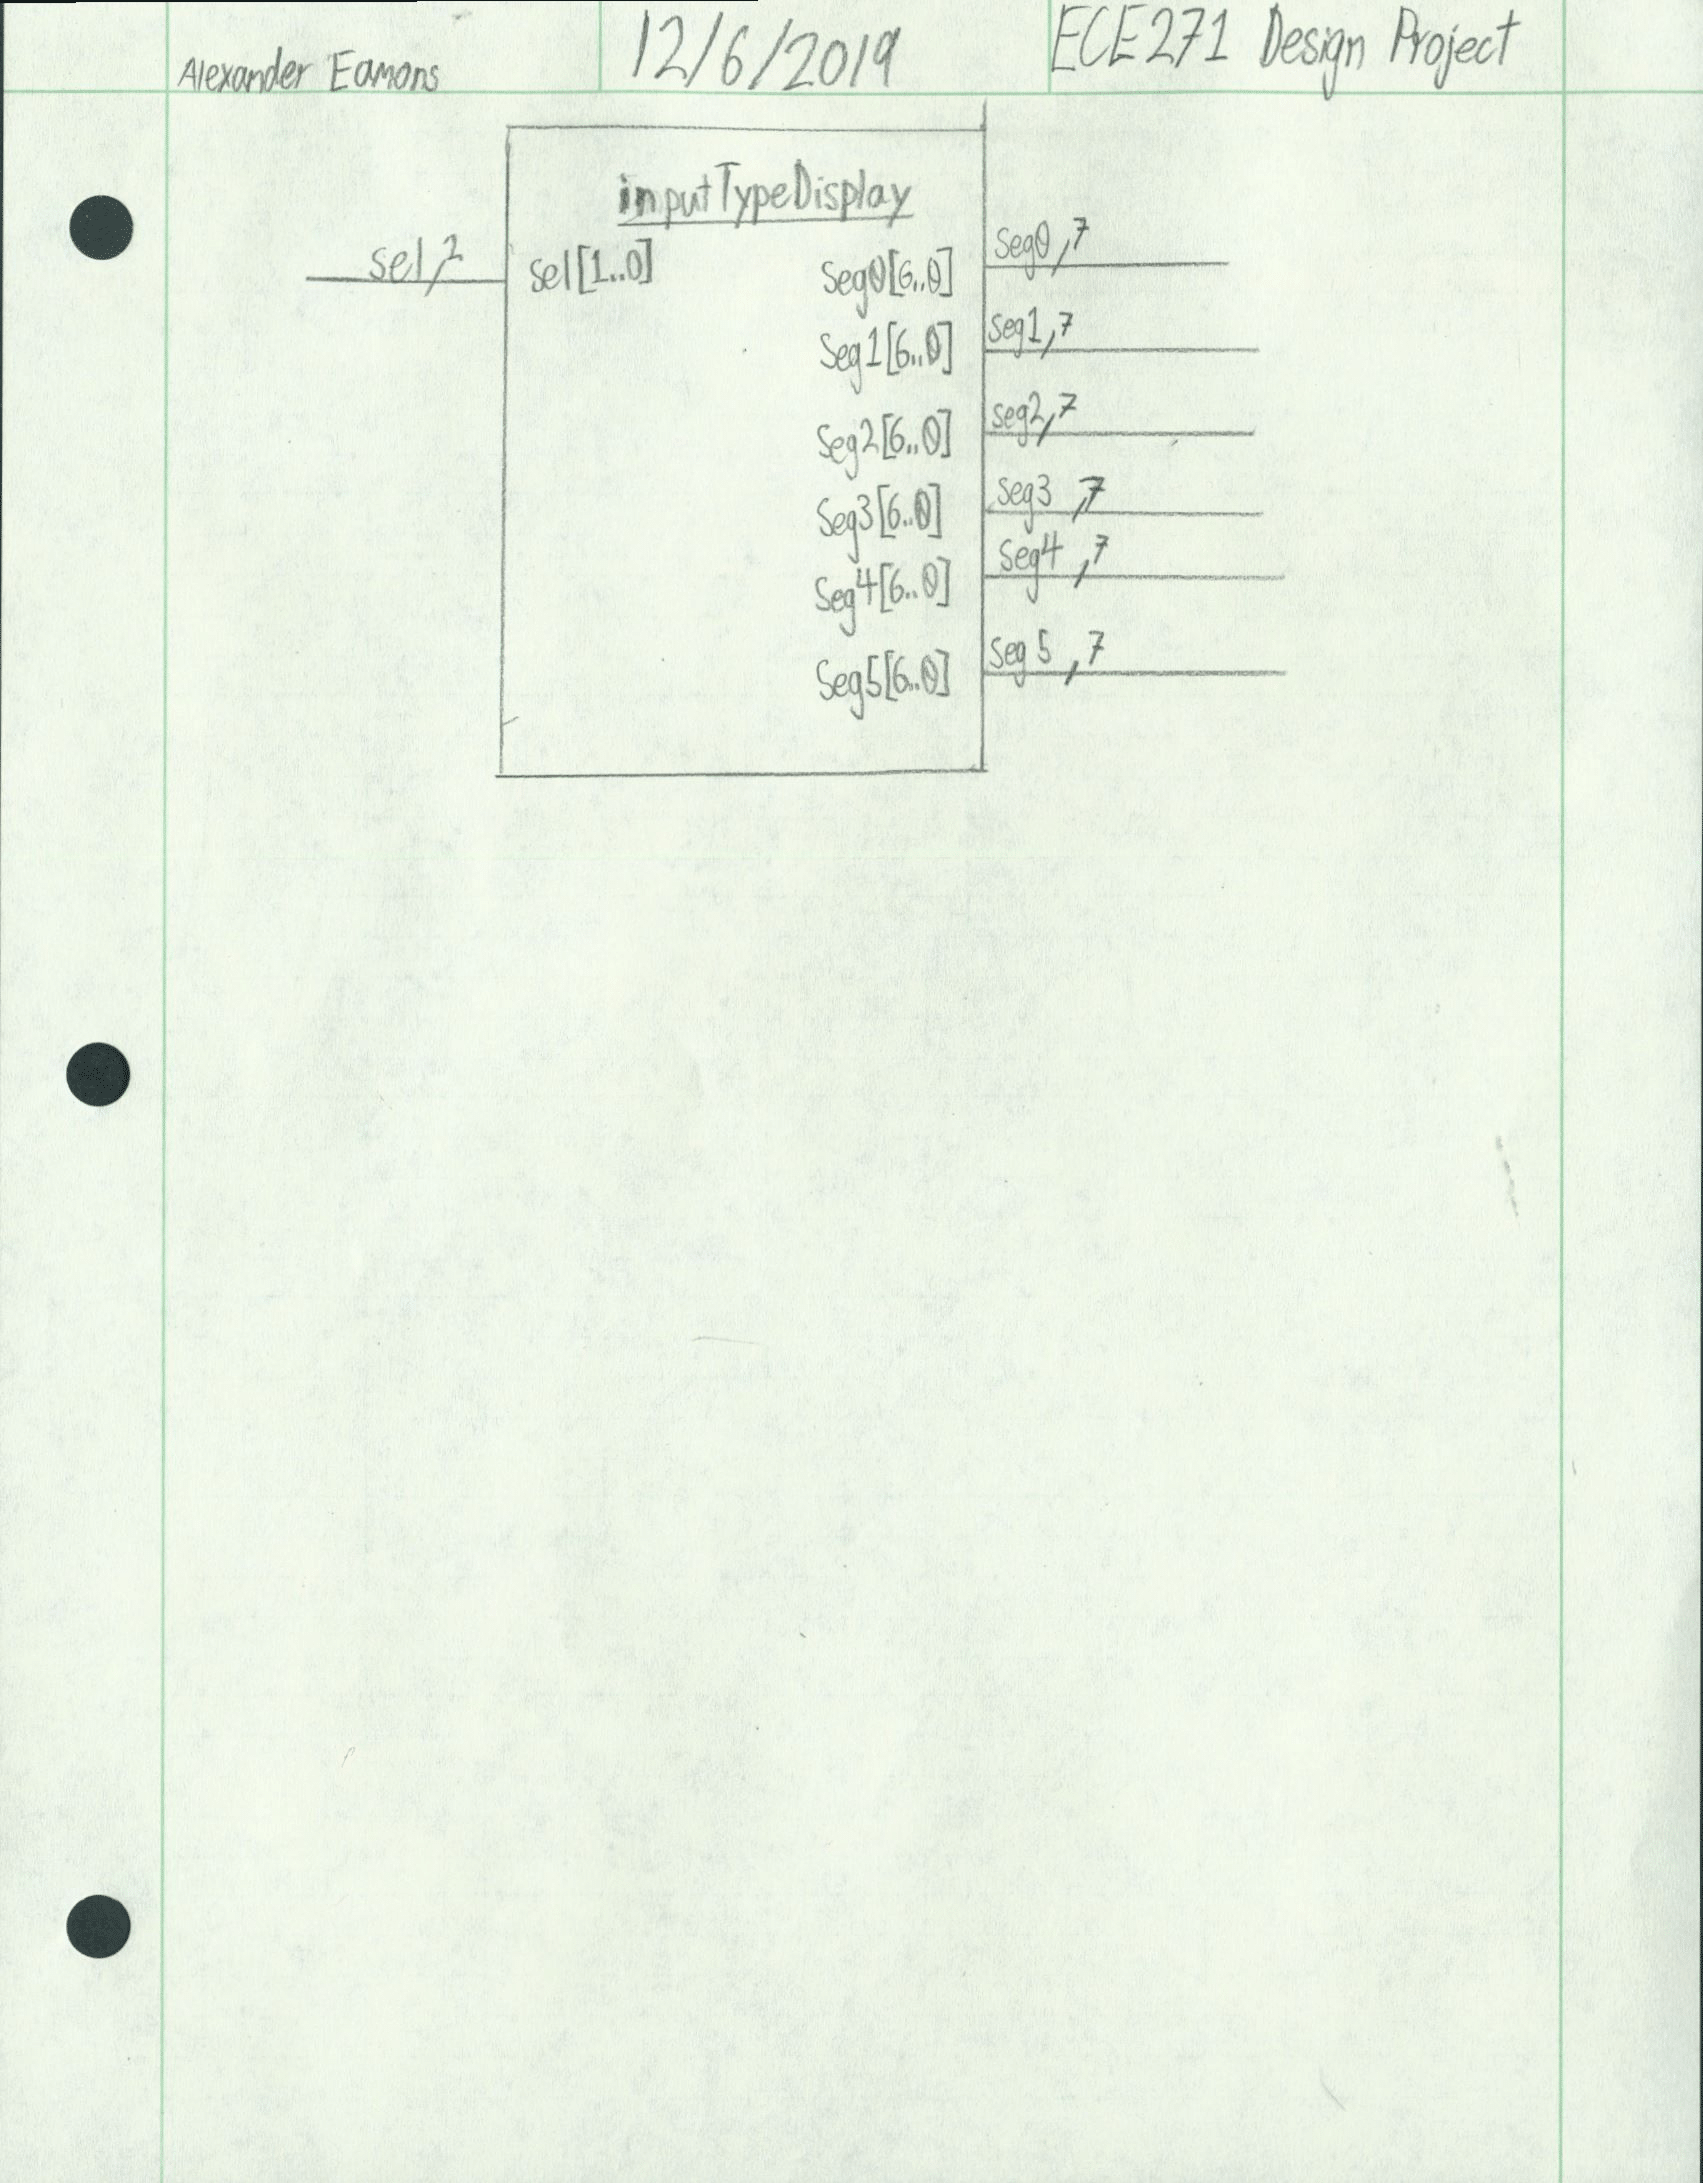 Alexander Eamons 12/6/2019 ECE271 Design Project
inputTypeDisplay
sel,2 sel[1..0] Seg0[6..0] Seg0,7
Seg1[6..0] Seg1,7
Seg2[6..0] seg2,7
Seg3[6..0] Seg3,7
Seg4[6..0] Seg4,7
Seg5[6..0] Seg5,7